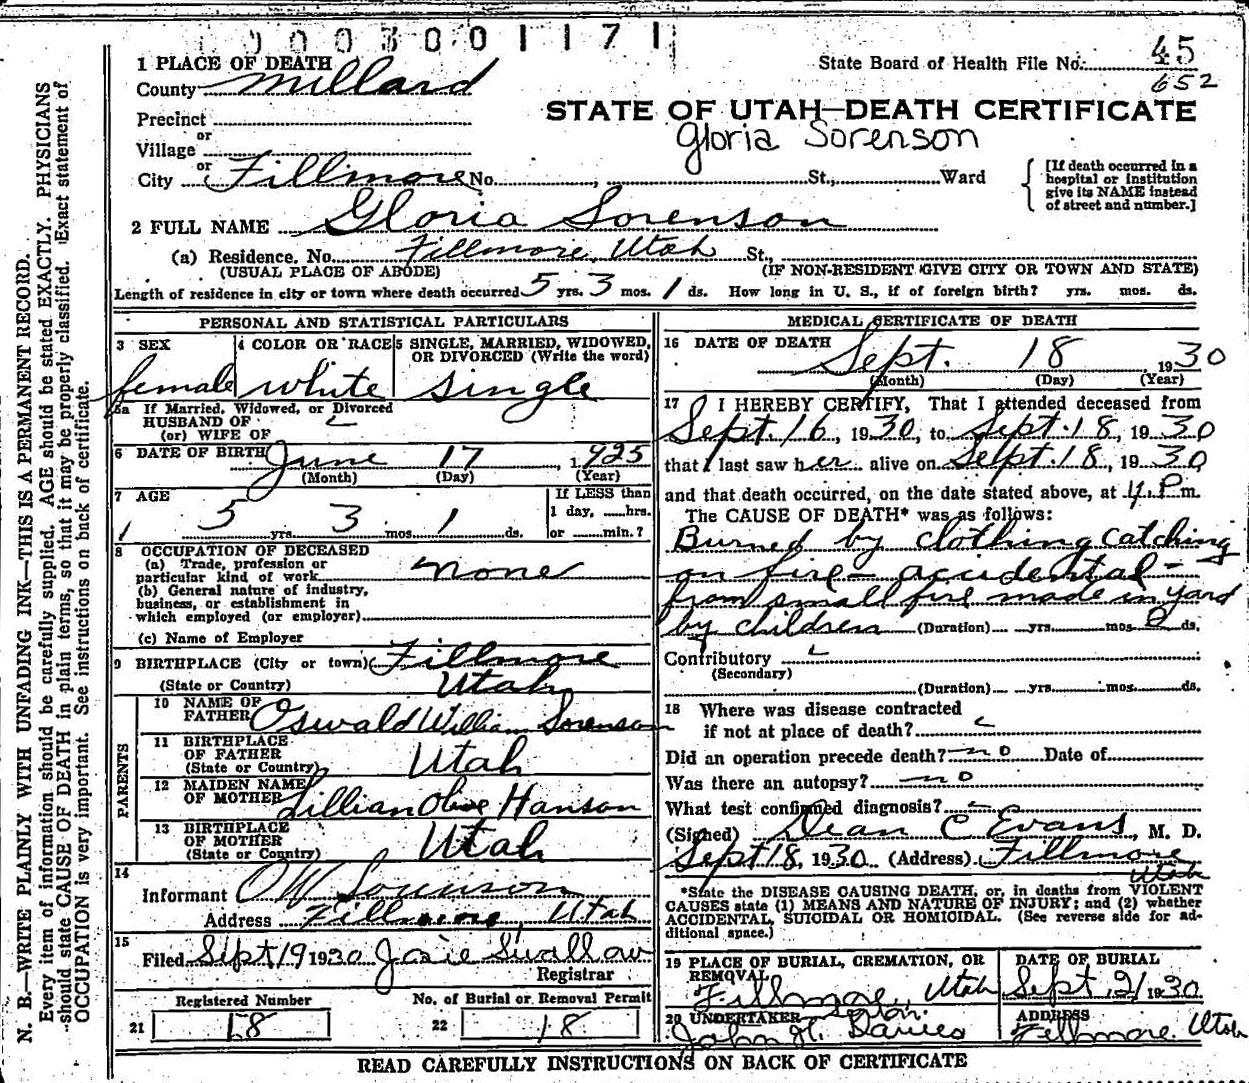 0003001171
1 PLACE OF DEATH
State Board of Health File No. 45
652
County Millard
STATE OF UTAH—DEATH CERTIFICATE
Precinct
Gloria Sorenson
or
Village
or
City Fillmore No. , St., Ward
[If death occurred in a hospital or institution give its NAME instead of street and number.]
2 FULL NAME Gloria Sorenson
(a) Residence. No. Fillmore, Utah St.,
(USUAL PLACE OF ABODE) (IF NON-RESIDENT GIVE CITY OR TOWN AND STATE)
Length of residence in city or town where death occurred 5 yrs. 3 mos. 1 ds. How long in U. S., if of foreign birth? yrs. mos. ds.
PERSONAL AND STATISTICAL PARTICULARS
3 SEX
female
4 COLOR OR RACE
white
5 SINGLE, MARRIED, WIDOWED, OR DIVORCED (Write the word)
single
5a If Married, Widowed, or Divorced
HUSBAND OF
(or) WIFE OF
6 DATE OF BIRTH June 17, 1925
(Month) (Day) (Year)
7 AGE
5 yrs. 3 mos. 1 ds.
If LESS than
1 day, ......hrs.
or ......min.?
8 OCCUPATION OF DECEASED
(a) Trade, profession or particular kind of work none
(b) General nature of industry, business, or establishment in which employed (or employer)
(c) Name of Employer
9 BIRTHPLACE (City or town) Fillmore
(State or Country) Utah
PARENTS
10 NAME OF FATHER Oswald William Sorenson
11 BIRTHPLACE OF FATHER (State or Country) Utah
12 MAIDEN NAME OF MOTHER Lillian Olive Hanson
13 BIRTHPLACE OF MOTHER (State or Country) Utah
14
Informant O W Sorenson
Address Fillmore, Utah
15
Filed Sept 19 1930 Josie Swallow
Registrar
Registered Number
21 18
No. of Burial or Removal Permit
22 18
MEDICAL CERTIFICATE OF DEATH
16 DATE OF DEATH
Sept. 18, 1930
(Month) (Day) (Year)
17 I HEREBY CERTIFY, That I attended deceased from
Sept. 16, 1930, to Sept. 18, 1930
that I last saw her alive on Sept. 18, 1930
and that death occurred, on the date stated above, at 4 P m.
The CAUSE OF DEATH* was as follows:
Burned by clothing catching
on fire - accidental -
from small fire made in yard
by children (Duration) yrs. mos. 2 ds.
Contributory
(Secondary)
(Duration) yrs. mos. ds.
18 Where was disease contracted
if not at place of death?
Did an operation precede death? no Date of
Was there an autopsy? no
What test confirmed diagnosis?
(Signed) Dean C Evans, M. D.
Sept 18, 1930 (Address) Fillmore
Utah
*State the DISEASE CAUSING DEATH, or, in deaths from VIOLENT
CAUSES state (1) MEANS AND NATURE OF INJURY; and (2) whether
ACCIDENTAL, SUICIDAL OR HOMICIDAL. (See reverse side for ad-
ditional space.)
19 PLACE OF BURIAL, CREMATION, OR REMOVAL
Fillmore, Utah
DATE OF BURIAL
Sept 21 1930
20 UNDERTAKER
John H. Davies
ADDRESS
Fillmore. Utah
READ CAREFULLY INSTRUCTIONS ON BACK OF CERTIFICATE
N. B.—WRITE PLAINLY WITH UNFADING INK—THIS IS A PERMANENT RECORD.
Every item of information should be carefully supplied. AGE should be stated EXACTLY. PHYSICIANS
should state CAUSE OF DEATH in plain terms, so that it may be properly classified. Exact statement of
OCCUPATION is very important. See instructions on back of certificate.